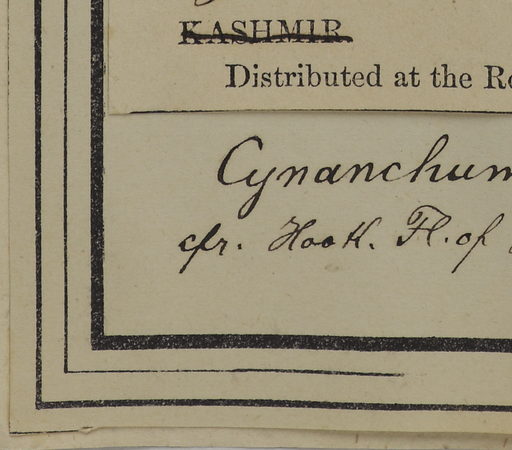 KASHMIR.
Distributed at the Ro
Cynanchum
cfr. Hook. Fl. of